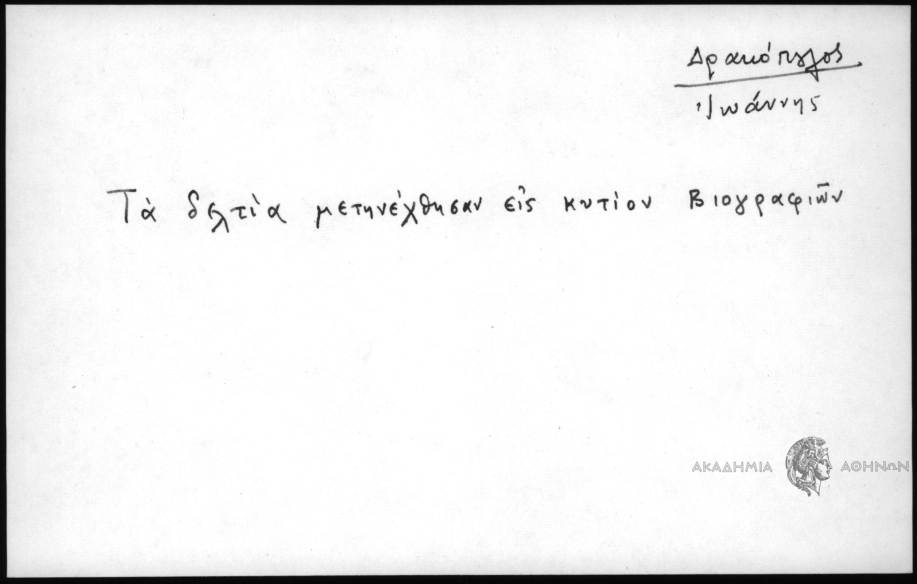 Δρακόπουλος
Ἰωάννης
Τὰ δελτία μετηνέχθησαν εἰς κυτίον Βιογραφιῶν
ΑΚΑΔΗΜΙΑ ΑΘΗΝΩΝ